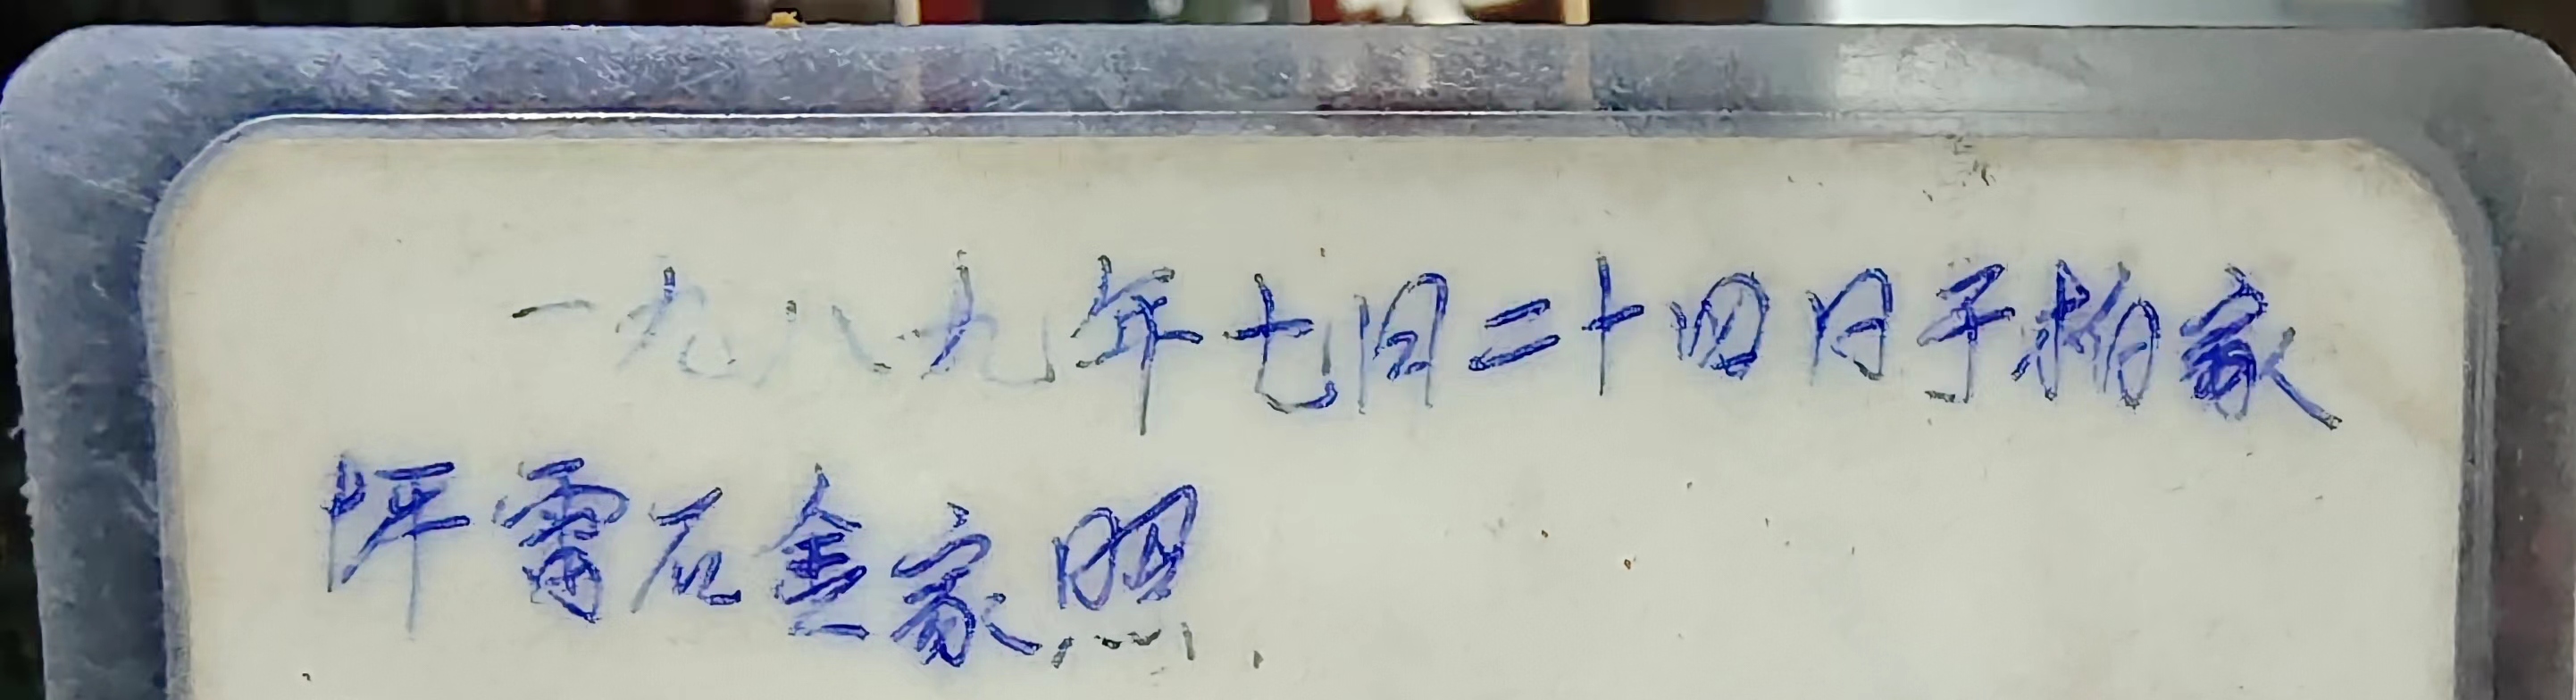 一九八九年七月二十四日于柳家
坪雷石金家照.